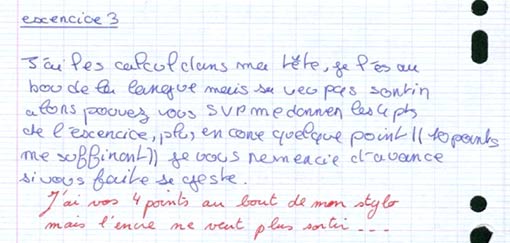 excencice 3
J'ai les calcul dans ma tête, je l'es au
bou de la langue mais sa veu pas sortin
alons pouvez vous SVP me donnen les 4 pts
de l'excencice, plus, en cone quelque point || 10 points
me suffinont || je vous nemencie d'avance
si vous faite se geste.
J'ai vos 4 points au bout de mon stylo
mais l'encre ne veut plus sortir ...